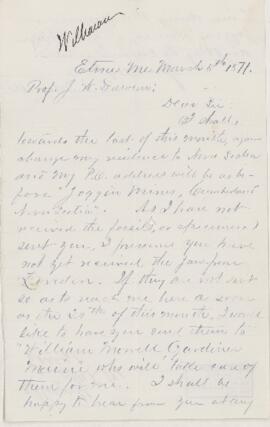 Williman
Etna Me March 8th 1871.
Prof. J. W. Dawson;
Dear Sir:
I shall,
towards the last of this month, again
change my residence to Nova Scotia
and my P.O. address will be as be-
fore "Joggin Mines, Cumberland
Nova Scotia". As I have not
received the fossils, or specimens I
sent you, I presume you have
not yet received them from
London. If they are not sent
so as to reach me here as soon
as the 25th of this month, I would
like to have you send them to
"William Merrill Gardiner
Maine" who will take care of
them for me. I shall be
happy to hear from you at any